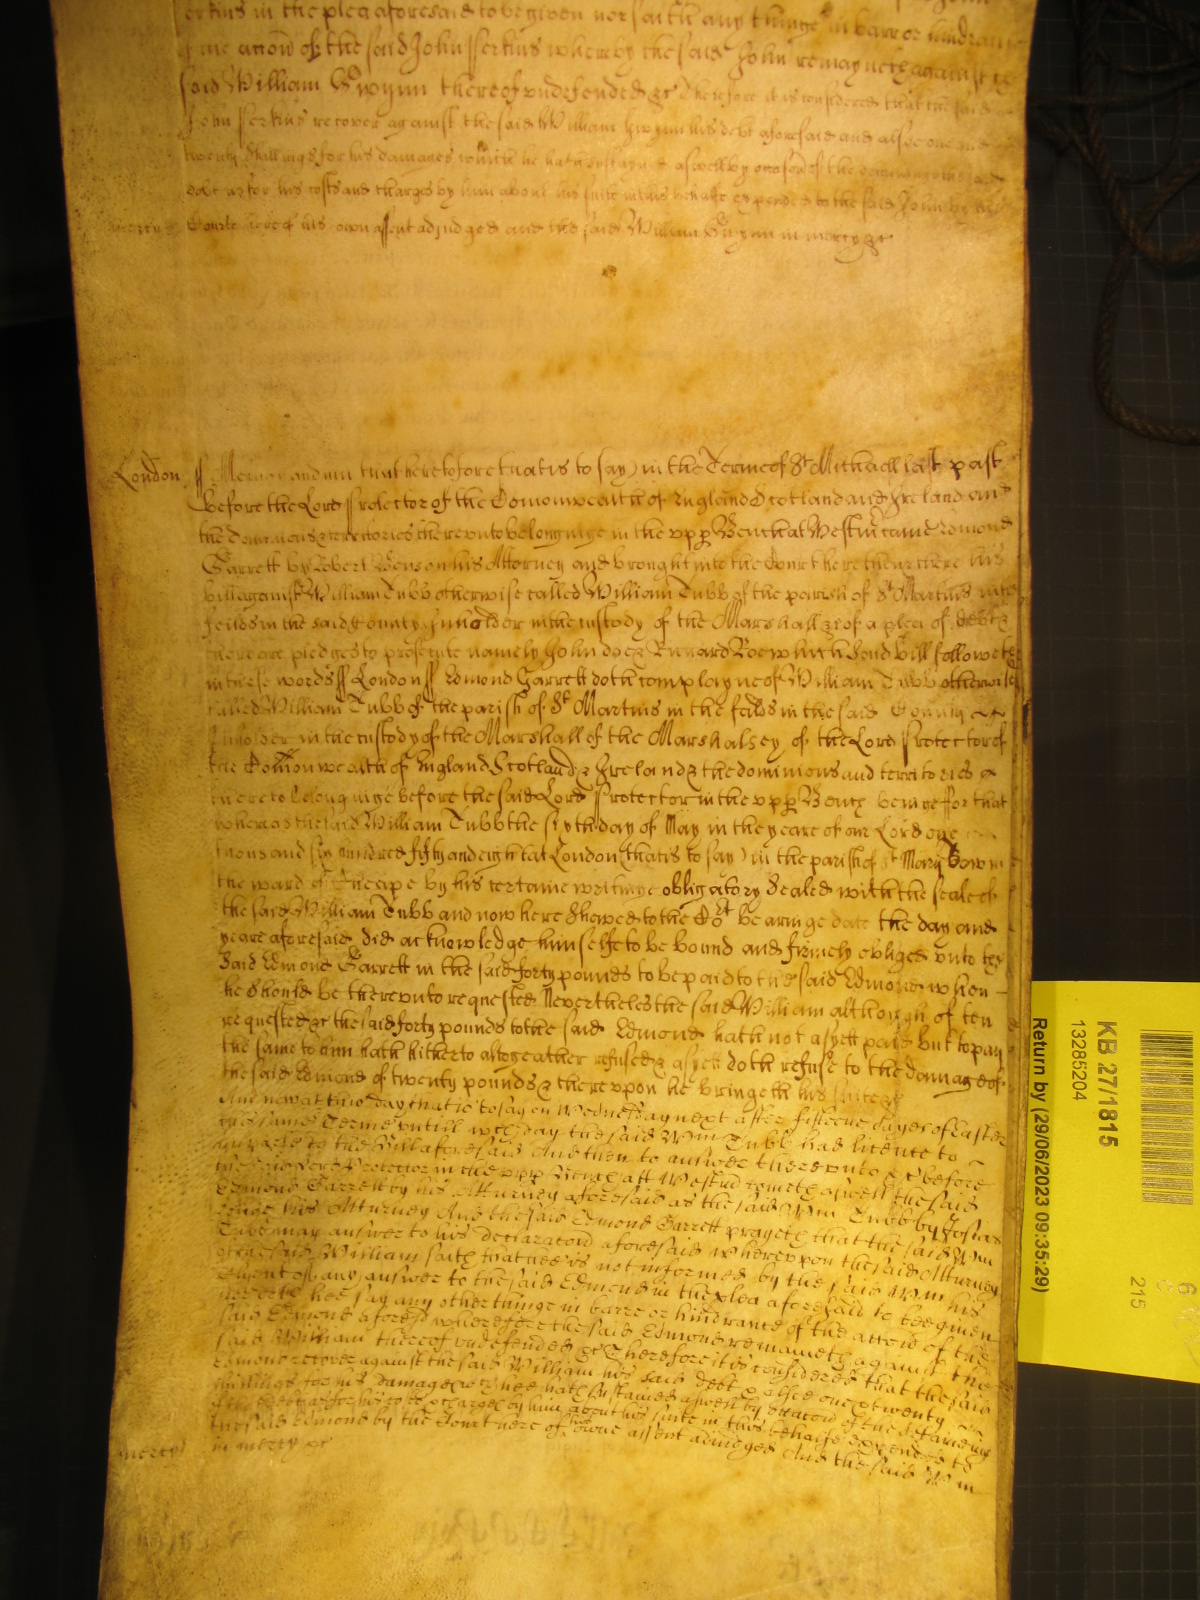 erkins in the plea aforesaid to be given nor saith any thinge in barr or hindran
of the accon of the said John Perkins whereby the said John remayneth against the
said William Gwynn thereof undefended &c Therefore it is considered that the said
John Perkins recover against the said William Gwynn his debt aforesaid and alsoe one and
twenty shillings for his damages which he hath susteyned aswell by occasion of the deteyning of the said
debt as for his costs and charges by him about his suite in this behalfe expended to the said John by the
mercy Courte here of his own assent adjudged and the said William Gwynn in mercy &c
London ss Memorandum that heretofore (that is to say) in the Terme of St Michaell last past
before the Lord Protector of the Comonwealth of England Scotland and Ireland and
the dominions & territories thereunto belonginge in the upp Bench at Westmr came Edmond
Garrett by Robert Benson his Attorney and brought into the Court here then there his
bill against William Tubb otherwise called William Tubb of the parish of St Martins in the
feilds in the said County Innholder in the custody of the Marshall &c of a plea of debt &
there are pledges to prosecute namely John doe & Richard Roe which said bill followeth
in these words ss London ss Edmond Garrett doth complayne of William Tubb otherwise
called William Tubb of the parish of St Martins in the feilds in the said County
Innholder in the custody of the Marshall of the Marshalsey of the Lord Protector of
the Comonwealth of England Scotland & Ireland & the dominions and territories
thereto belonginge before the said Lord Protector in the upp Bench beinge ffor that
whereas the said William Tubb the sixth day of May in the yeare of our Lord one
thousand six hundred fifty and eight at London (that is to say) in the parish of St Mary Bow in
the ward of Cheape by his certaine writinge obligatory sealed with the seale of
the said William Tubb and now here shewed to the Cort bearinge date the day and
yeare aforesaid did acknowledge himselfe to be bound and firmely obliged unto the
said Edmond Garrett in the said forty pounds to be paid to the said Edmond when
he should be thereunto requested Nevertheles the said William although often
requested &c the said forty pounds to the said Edmond hath not as yett paid but to pay
the same to him hath hitherto altogeather refused & as yett doth refuse to the damage of
the said Edmond of twenty pounds & thereupon he bringeth his suite &c
And now at this day that is to say on Wednesday next after fifteene dayes of Easter
this same Terme untill wch day the said Wm Tubb had licence to
imparle to the Bill aforesaid And then to answer thereunto &c before
the said Lord Protector in the upp Bench att Westmr cometh aswell the said
Edmond Garrett by his Atturney aforesaid as the said Wm Tubb by Josias
his Atturney And the said Edmond Garrett prayeth that the said Wm
Tubb may answer to his declaracon aforesaid whereupon the said Atturney
of the said William saith that hee is not informed by the said Wm his
Client of any answer to the said Edmond in the plea aforesaid to bee given
nor doth hee say any other thinge in barre or hindrance of the accon of the
said Edmond aforesd wherefore the said Edmond remaineth against the
said William thereof undefended &c Therefore it is considered that the said
Edmond recover against the said William his said debt & alsoe one & twenty
shillings for his damages wch hee hath sustained aswell by occacon of the detaineing
of the debt as for his costs & charges by him about his suite in this behalfe expended to
the said Edmond by the Court here of his owne assent adiudged And the said Wm
mercy in mercy &c
KB 271/815
13285204
Return by (29/06/2023 09:35:29)
215